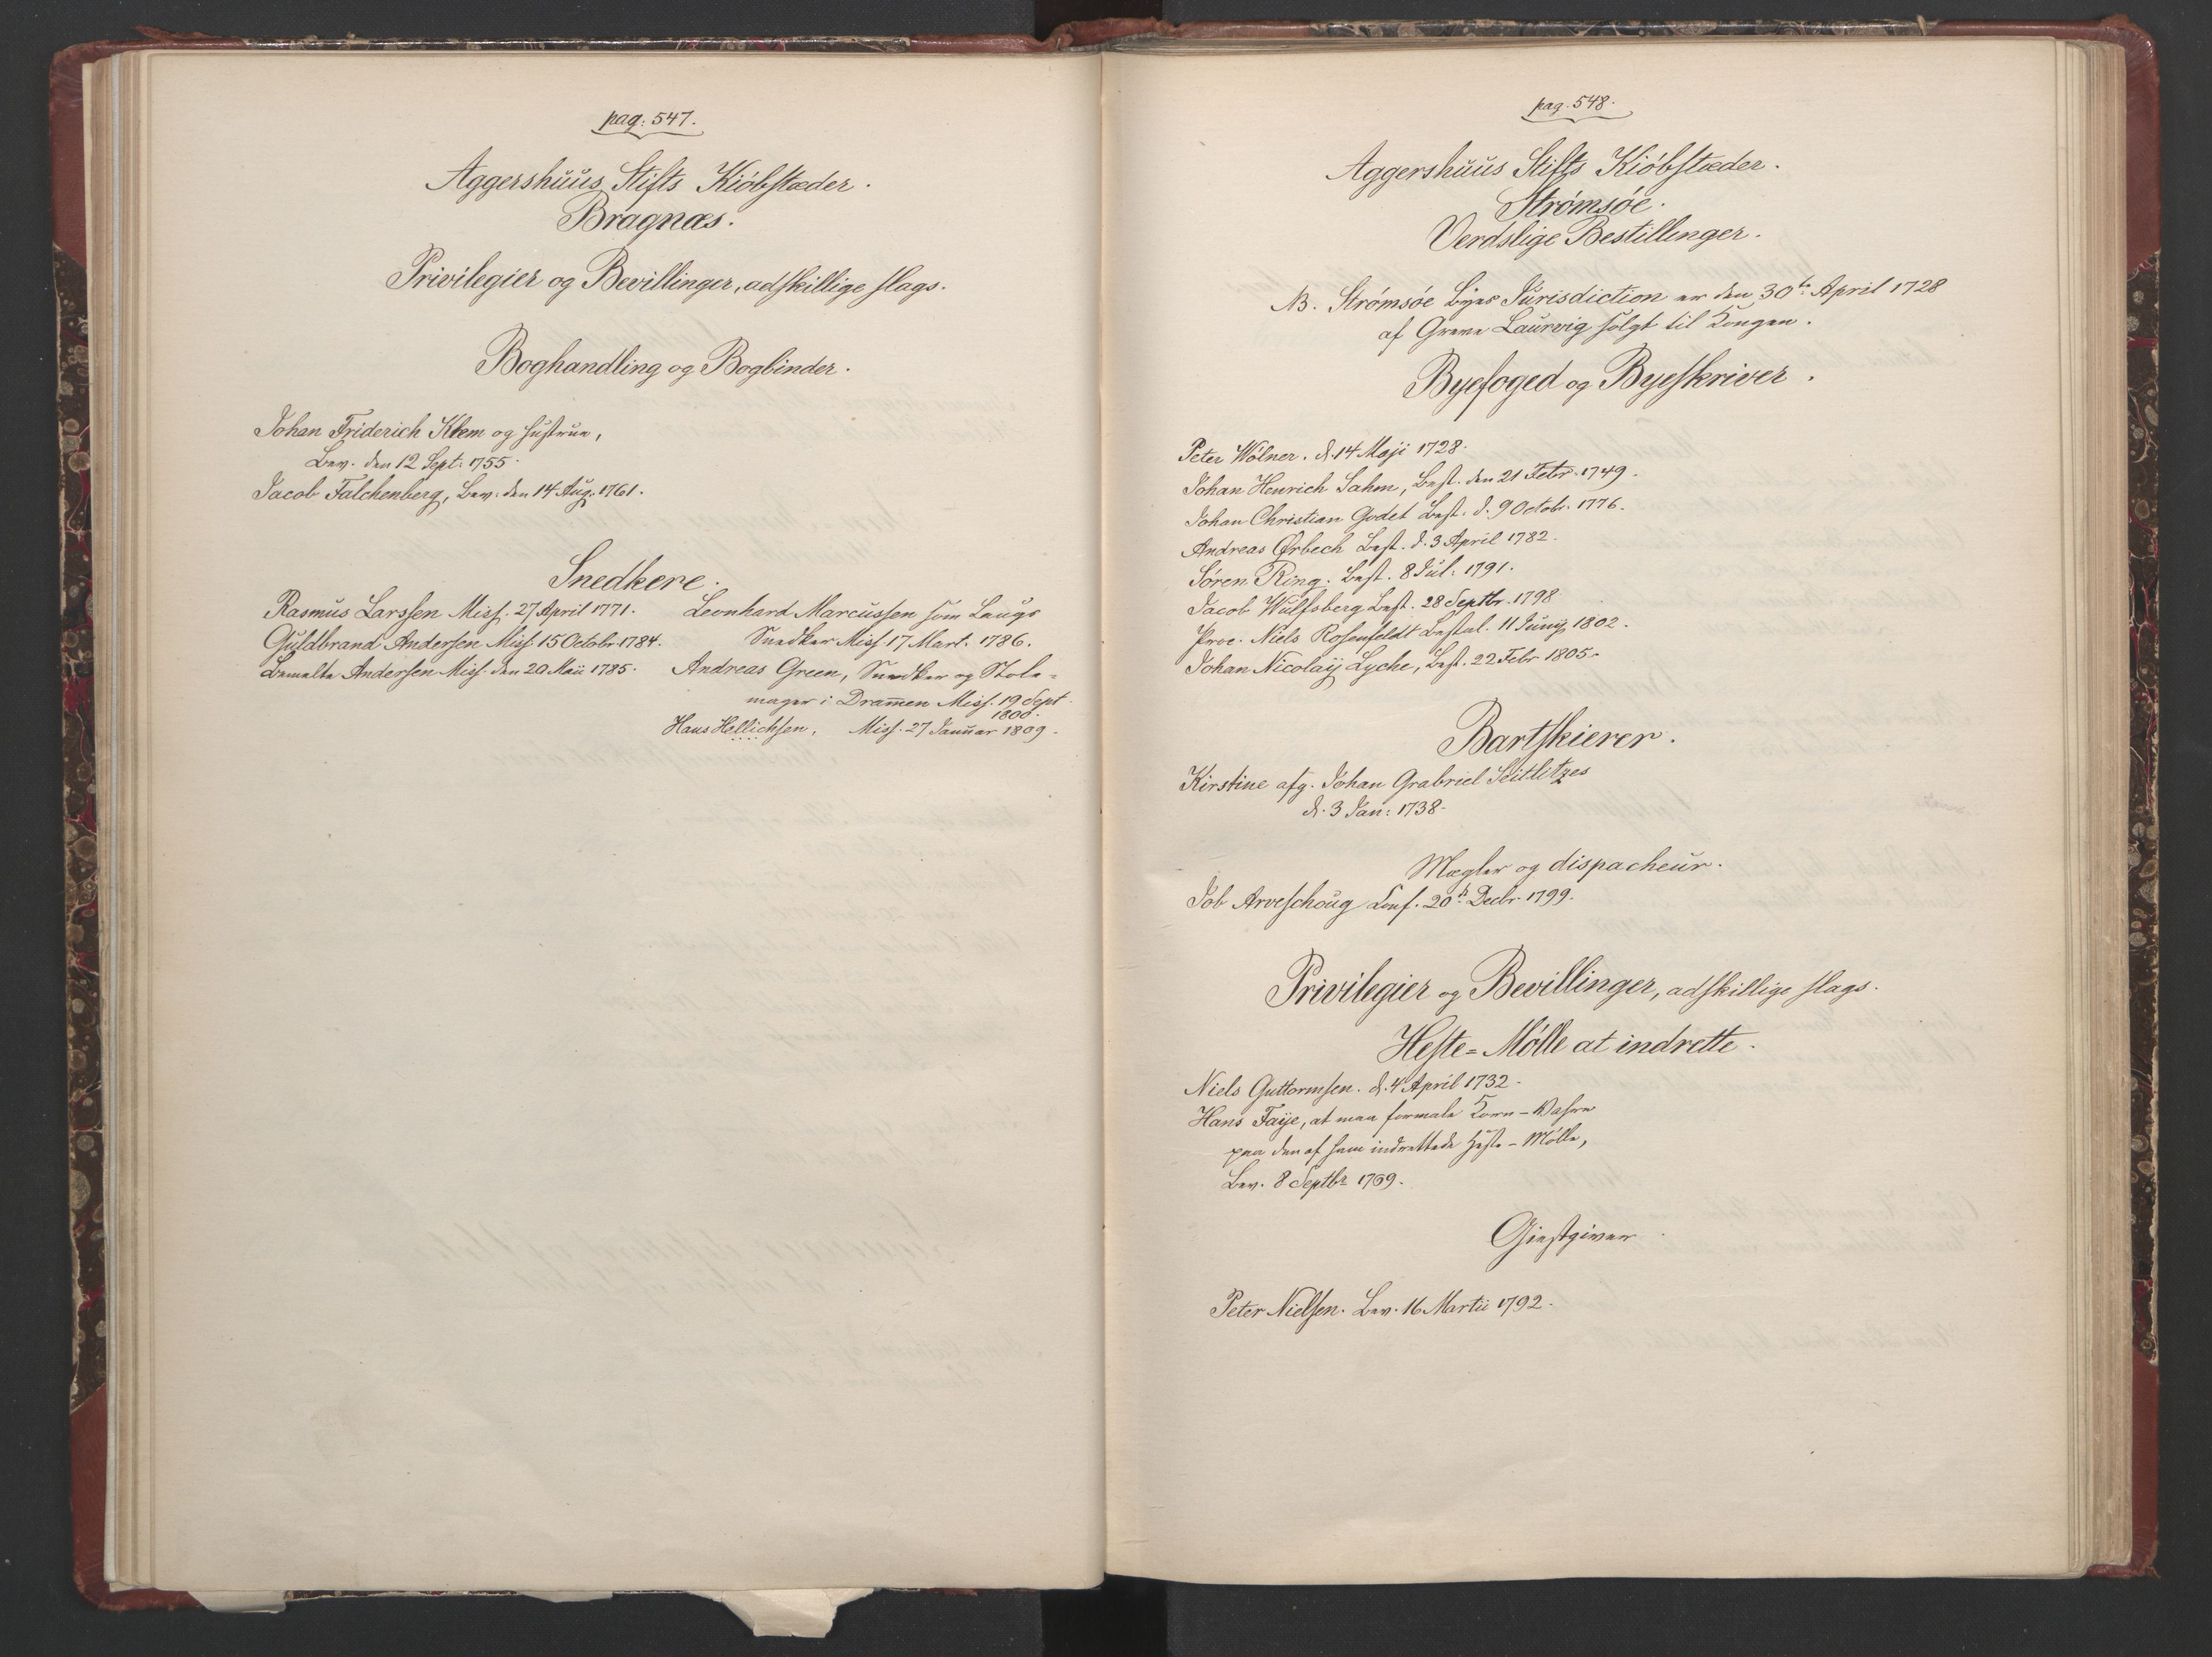 pag: 547.
Aggershuus Stifts Kiøbstæder.
Bragnæs.
Privilegier og Bevillinger, adskillige slags.
Boghandling og Bogbinder.
Johan Friderich Klem og Hustrue,
Bev. den 12 Sept: 1755.
Jacob Falchenberg, Bev: den 14 Aug: 1761.
Snedkere.
Rasmus Larssen Miss. 27 April 1771.
Guldbrand Andersen Miss 15 Octobr. 1784.
Bemelte Andersen Miss. den 20 Maii 1785.
Leonhard Marcussen som Laugs
Snedker Miss 17 Mart. 1786.
Andreas Green, Snedker og Stole-
mager i Dramen Miss. 19 Sept
1800.
Hans Hellichsen, Miss. 27 Januar 1809.
pag. 548.
Aggershuus Stifts Kiøbstæder.
Strømsøe.
Verdslige Bestillinger.
NB. Strømsøe Byes Jurisdiction er den 30te April 1728
af Greve Laurvig solgt til Kongen.
Byefoged og Byeskriver.
Peter Wølner. d. 14 Maji 1728.
Johan Henrich Sahm, Best. den 21 Febr. 1749.
Johan Christian Godet Best. d. 9 Octobr. 1776.
Andreas Ørbech Best. d. 3 April 1782.
Søren Ring. Best. 8 Jul: 1791.
Jacob Wulfsberg Best. 28 Septbr. 1798
Proc. Niels Rosenfeldt Bestal. 11 Junij 1802.
Johan Nicolaij Lyche, Best. 22 Febr 1805.
Bartskierer.
Kirstine afg. Johan Grabriel Seitlitzes
d. 3 Jan: 1738.
Mægler og dispacheur.
Job Arveschoug Conf. 20d Decbr. 1799.
Privilegier og Bevillinger, adskillige slags.
Heste=Mølle at indrette.
Niels Guttormsen. d. 4 April 1732.
Hans Faije, at maa formale Korn-Vahre
paa den af ham indrettede Heste-Mølle,
Bev. 8 Septbr 1769.
Giestgiver
Peter Nielsen. Bev. 16 Martii 1792.